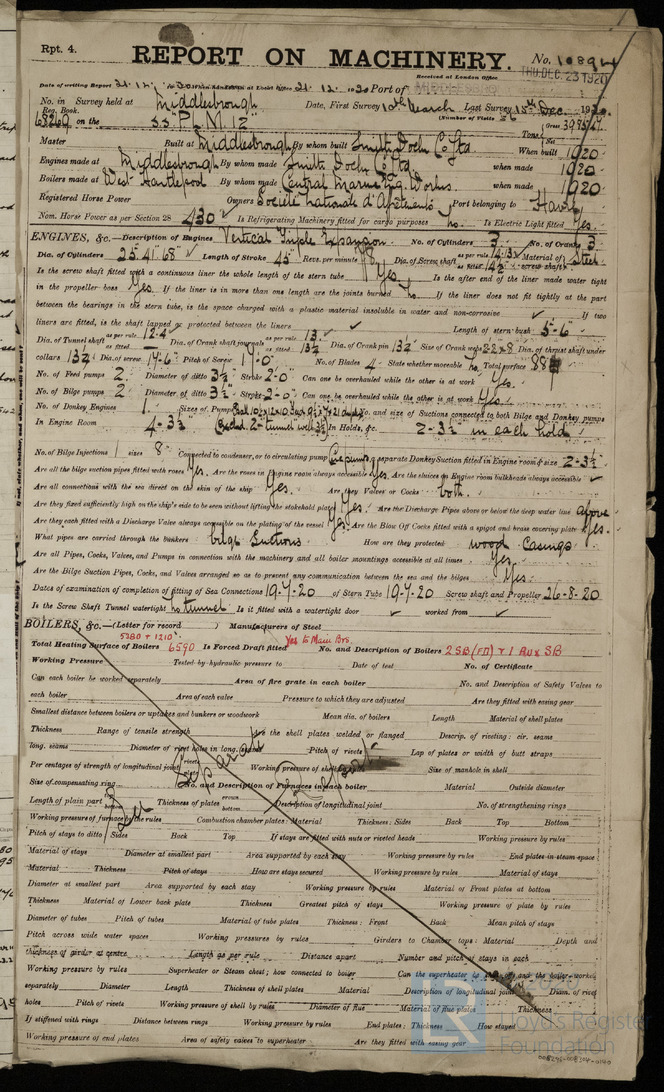 Rpt. 4.
REPORT ON MACHINERY.
No. 10894
Received at London Office
THU. DEC. 23 1920
Date of writing Report 21.12.1920 When handed in at Local Office 21.12.1920 Port of MIDDLESBRO
No. in Survey held at Middlesbrough Date, First Survey 10th March Last Survey 15th Dec. 1920
Reg. Book. (Number of Visits 56
68269 on the S.S "P.L.M. 12" Tons Gross 3985.47 Net
Master Built at Middlesbrough By whom built Smiths Dock Co Ltd When built 1920
Engines made at Middlesbrough By whom made Smiths Dock Co Ltd when made 1920
Boilers made at West Hartlepool By whom made Central Marine Eng. Works. when made 1920
Registered Horse Power Owners Société Nationale d'Affrètements Port belonging to Havre
Nom. Horse Power as per Section 28 430 Is Refrigerating Machinery fitted for cargo purposes no. Is Electric Light fitted Yes.
ENGINES, &c.—Description of Engines Vertical Triple Expansion No. of Cylinders 3 No. of Cranks 3
Dia. of Cylinders 25.41.68 Length of Stroke 45" Revs. per minute 78 Dia. of Screw shaft as per rule 14.33 as fitted 14½ Material of screw shaft Steel
Is the screw shaft fitted with a continuous liner the whole length of the stern tube Yes Is the after end of the liner made water tight
in the propeller boss Yes. If the liner is in more than one length are the joints burned no. If the liner does not fit tightly at the part
between the bearings in the stern tube, is the space charged with a plastic material insoluble in water and non-corrosive ✓ If two
liners are fitted, is the shaft lapped or protected between the liners ✓ Length of stern bush 5-6"
Dia. of Tunnel shaft as per rule 12.4 as fitted — Dia. of Crank shaft journals as per rule 13. as fitted 13½ Dia. of Crank pin 13½ Size of Crank webs 22x8 Dia. of thrust shaft under
collars 13½ Dia. of screw 17-6" Pitch of Screw 17-0" No. of Blades 4 State whether moveable no. Total surface 88
No. of Feed pumps 2. Diameter of ditto 3½ Stroke 2-0" Can one be overhauled while the other is at work Yes.
No. of Bilge pumps 2 Diameter of ditto 3½" Stroke 2-0" Can one be overhauled while the other is at work Yes.
No. of Donkey Engines 1. Sizes of Pumps No. and size of Suctions connected to both Bilge and Donkey pumps
In Engine Room 4-3½" 2" tunnel well 3½ In Holds, &c. 2-3½" in each hold
No. of Bilge Injections 1 sizes 8" Connected to condenser, or to circulating pump Cir. pump Is a separate Donkey Suction fitted in Engine room & size 2-3½"
Are all the bilge suction pipes fitted with roses Yes. Are the roses in Engine room always accessible Yes. Are the sluices on Engine room bulkheads always accessible ✓
Are all connections with the sea direct on the skin of the ship Yes. Are they Valves or Cocks both.
Are they fixed sufficiently high on the ship's side to be seen without lifting the stokehold plates Yes. Are the Discharge Pipes above or below the deep water line above
Are they each fitted with a Discharge Valve always accessible on the plating of the vessel Yes. Are the Blow Off Cocks fitted with a spigot and brass covering plate Yes.
What pipes are carried through the bunkers bilge suctions How are they protected wood casings
Are all Pipes, Cocks, Valves, and Pumps in connection with the machinery and all boiler mountings accessible at all times Yes.
Are the Bilge Suction Pipes, Cocks, and Valves arranged so as to prevent any communication between the sea and the bilges Yes.
Dates of examination of completion of fitting of Sea Connections 19-7-20 of Stern Tube 19-7-20 Screw shaft and Propeller 26-8-20
Is the Screw Shaft Tunnel watertight no tunnel Is it fitted with a watertight door ✓ worked from ✓
BOILERS, &c.—(Letter for record ) Manufacturers of Steel
5380 + 1210 Yes to Main Brs.
Total Heating Surface of Boilers 6590 Is Forced Draft fitted No. and Description of Boilers 2 SB (FD) + 1 Aux SB
Working Pressure Tested by hydraulic pressure to Date of test No. of Certificate
Can each boiler be worked separately Area of fire grate in each boiler No. and Description of Safety Valves to
each boiler Area of each valve Pressure to which they are adjusted Are they fitted with easing gear
Smallest distance between boilers or uptakes and bunkers or woodwork Mean dia. of boilers Length Material of shell plates
Thickness Range of tensile strength Are the shell plates welded or flanged Descrip. of riveting: cir. seams
long. seams Diameter of rivet holes in long. seams Pitch of rivets Lap of plates or width of butt straps
Per centages of strength of longitudinal joint rivets plate Working pressure of shell by rules Size of manhole in shell
Size of compensating ring No. and Description of Furnaces in each boiler Material Outside diameter
See Separate Report.
Length of plain part top bottom Thickness of plates crown bottom Description of longitudinal joint No. of strengthening rings
Working pressure of furnace by the rules Combustion chamber plates: Material Thickness: Sides Back Top Bottom
Pitch of stays to ditto: Sides Back Top If stays are fitted with nuts or riveted heads Working pressure by rules
Material of stays Diameter at smallest part Area supported by each stay Working pressure by rules End plates in steam space:
Material Thickness Pitch of stays How are stays secured Working pressure by rules Material of stays
Diameter at smallest part Area supported by each stay Working pressure by rules Material of Front plates at bottom
Thickness Material of Lower back plate Thickness Greatest pitch of stays Working pressure of plate by rules
Diameter of tubes Pitch of tubes Material of tube plates Thickness: Front Back Mean pitch of stays
Pitch across wide water spaces Working pressures by rules Girders to Chamber tops: Material Depth and
thickness of girder at centre Length as per rule Distance apart Number and pitch of stays in each
Working pressure by rules Superheater or Steam chest; how connected to boiler Can the superheater be shut off and the boiler worked
separately Diameter Length Thickness of shell plates Material Description of longitudinal joint Diam. of rivet
holes Pitch of rivets Working pressure of shell by rules Diameter of flue Material of flue plates Thickness
If stiffened with rings Distance between rings Working pressure by rules End plates: Thickness How stayed
Working pressure of end plates Area of safety valves to superheater Are they fitted with easing gear
Lloyd's Register
Foundation